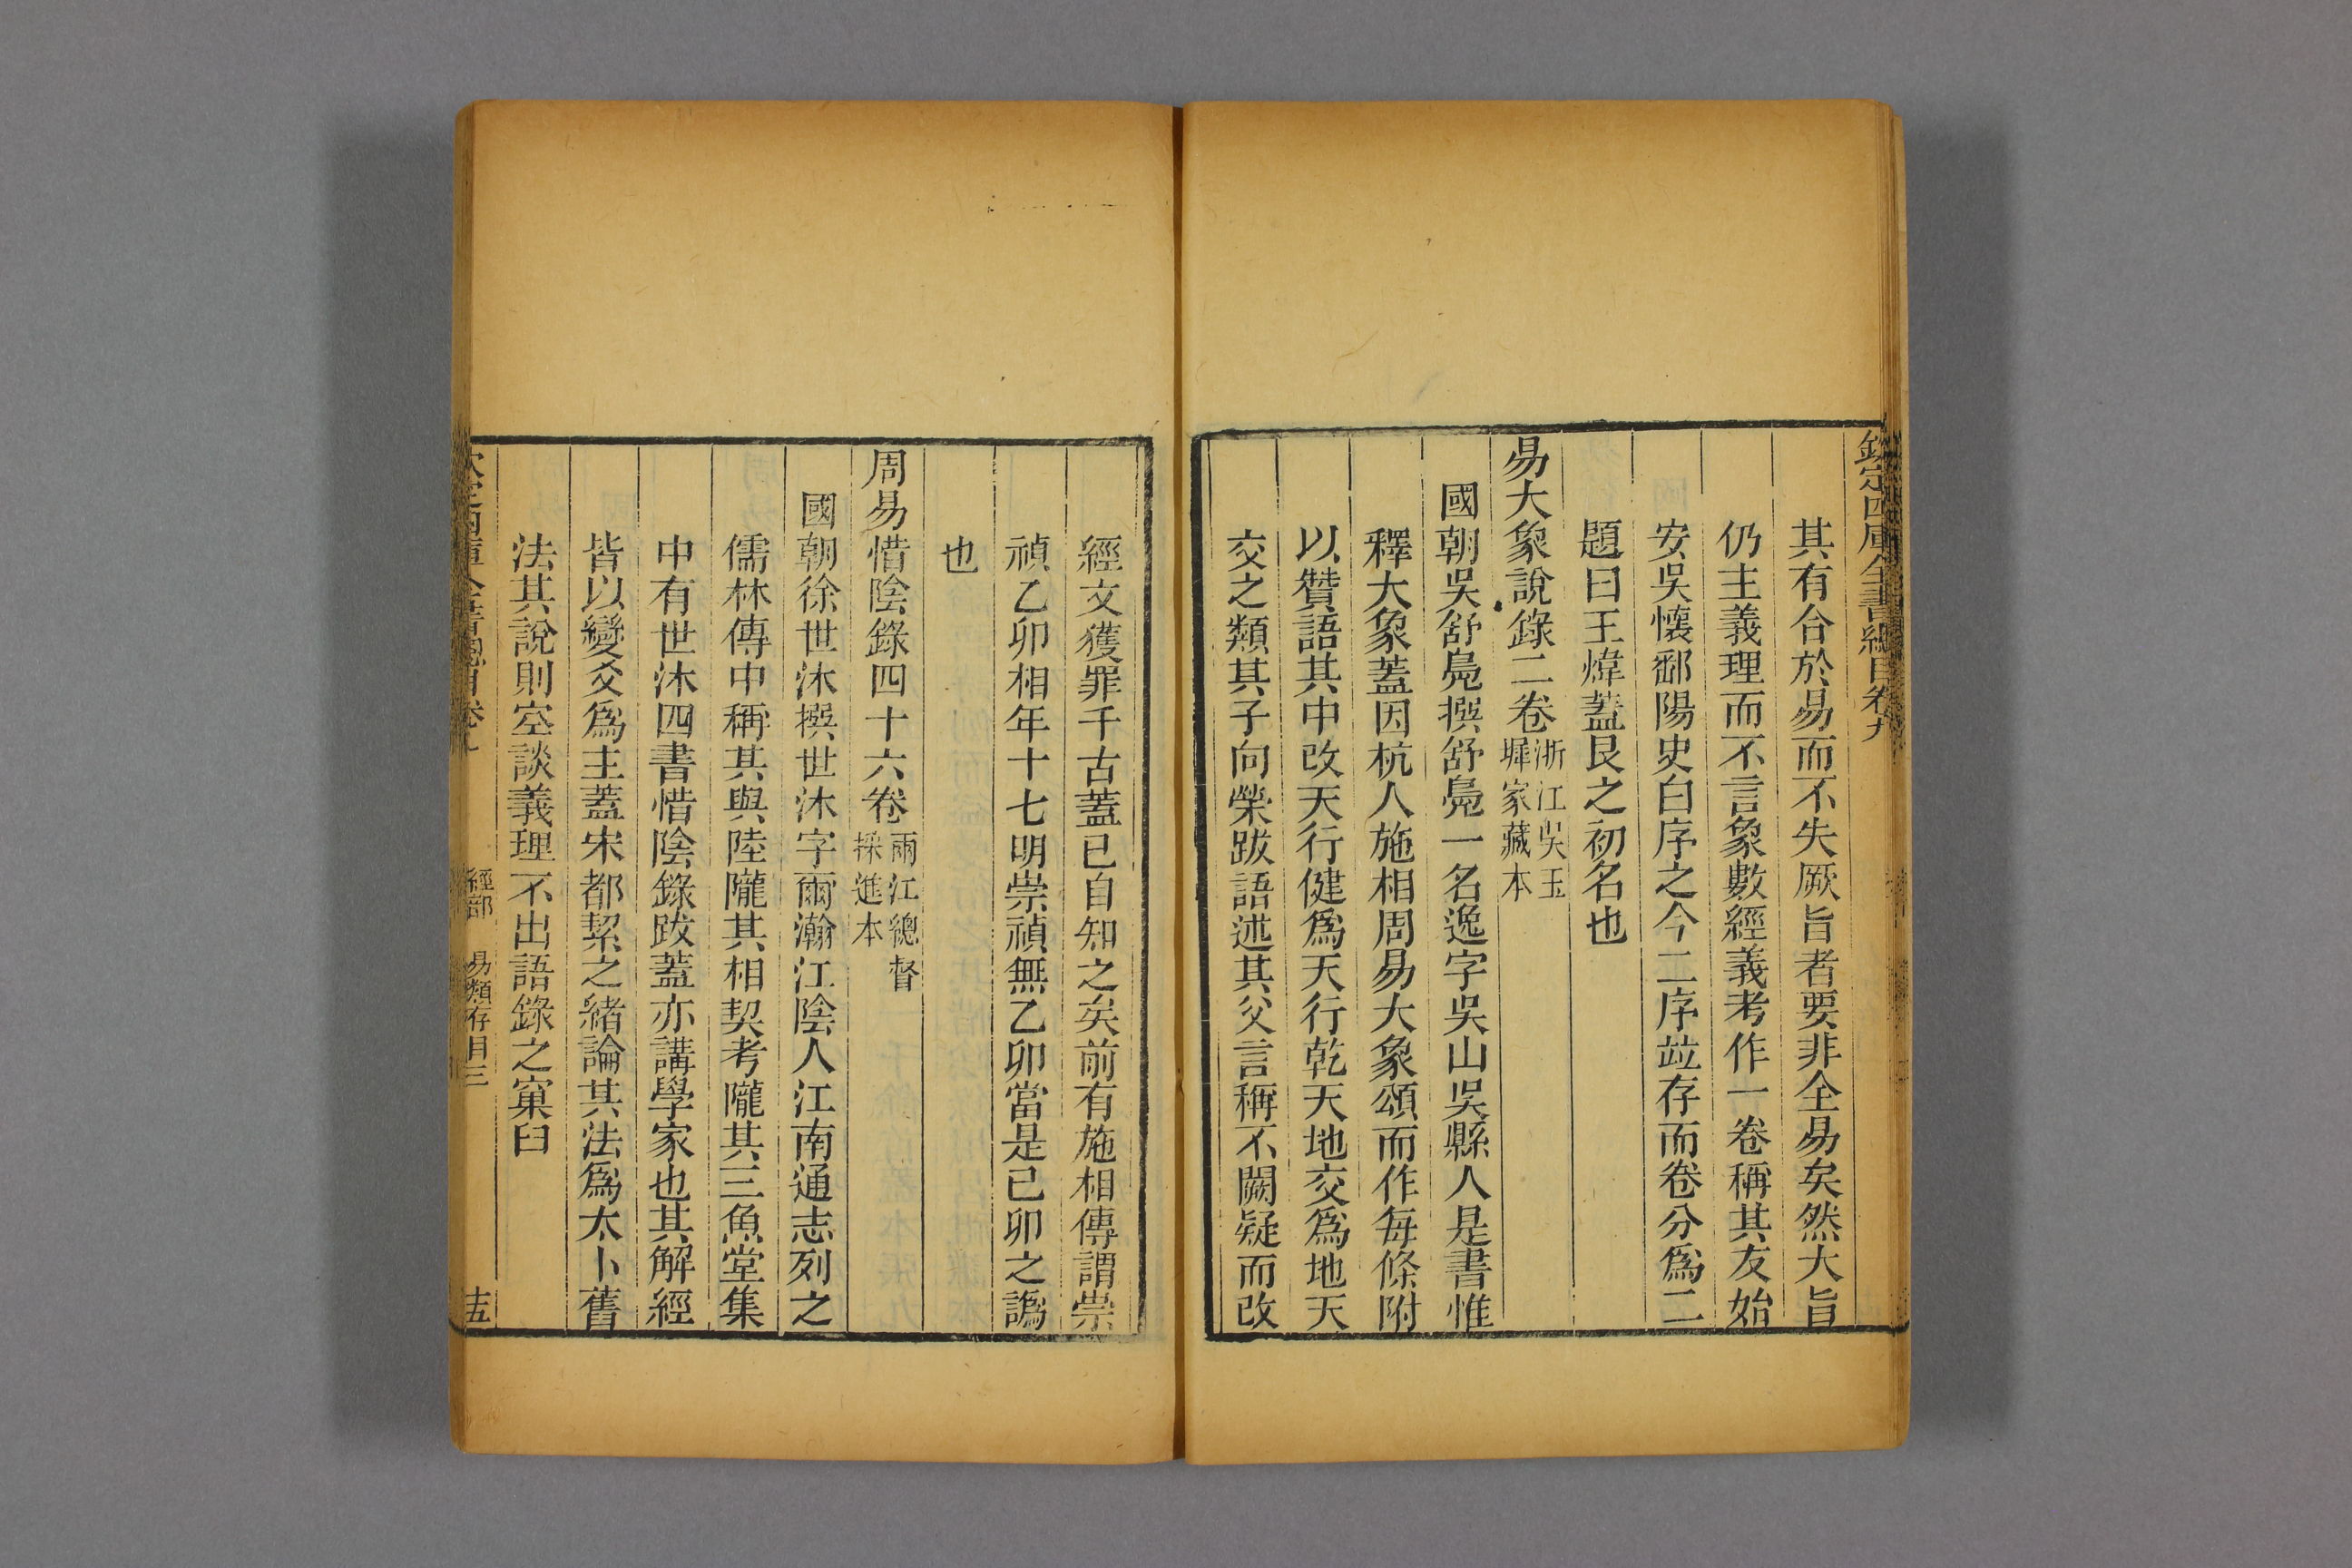 欽定四庫全書總目卷九
其有合於易而不失厥旨者要非全易矣然大旨
仍主義理而不言象數經義考作一卷稱其友始
安吳懷鄱陽史白序之今二序竝存而卷分爲二
題曰王煒蓋艮之初名也
易大象說錄二卷浙江吳玉墀家藏本
國朝吳舒鳧撰舒鳧一名逸字吳山吳縣人是書惟
釋大象蓋因杭人施相周易大象頌而作每條附
以贊語其中改天行健爲天行乾天地交爲地天
交之類其子向榮跋語述其父言稱不闕疑而改
經文獲罪千古蓋已自知之矣前有施相傳謂崇
禎乙卯相年十七明崇禎無乙卯當是己卯之譌
也
周易惜陰錄四十六卷兩江總督採進本
國朝徐世沐撰世沐字爾瀚江陰人江南通志列之
儒林傳中稱其與陸隴其相契考隴其三魚堂集
中有世沐四書惜陰錄跋蓋亦講學家也其解經
皆以變爻爲主蓋宋都絜之緒論其法爲太卜舊
法其說則空談義理不出語錄之窠臼
經部 易類存目三
十五